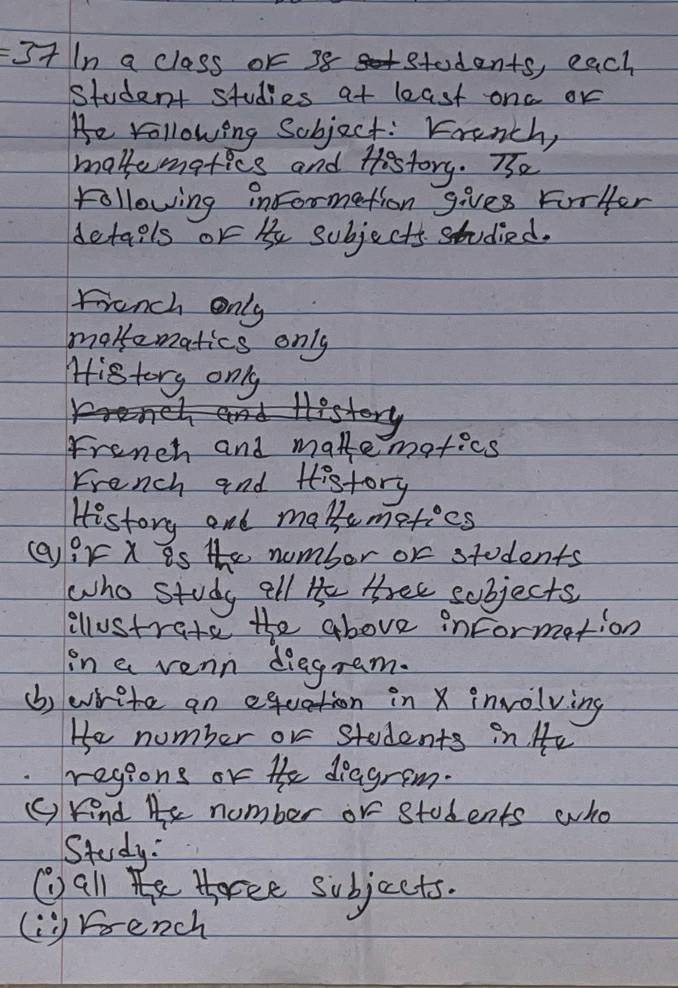 =37 In a class of 38 set students, each
Student studies at least one of
the following Subject: French,
mathematics and History. The
Following information gives further
details of the subjects studied.
French only
mathematics only
History only
French and History
French and mathematics
French and History
History and mathematics
(a) if X is the number of students
who study all the three subjects
illustrate the above information
in a venn diagram.
(b) write an equation in X involving
the number of students in the
regions of the diagram.
(c) Find the number of students who
Study:
(i) all the three subjects.
(ii) French